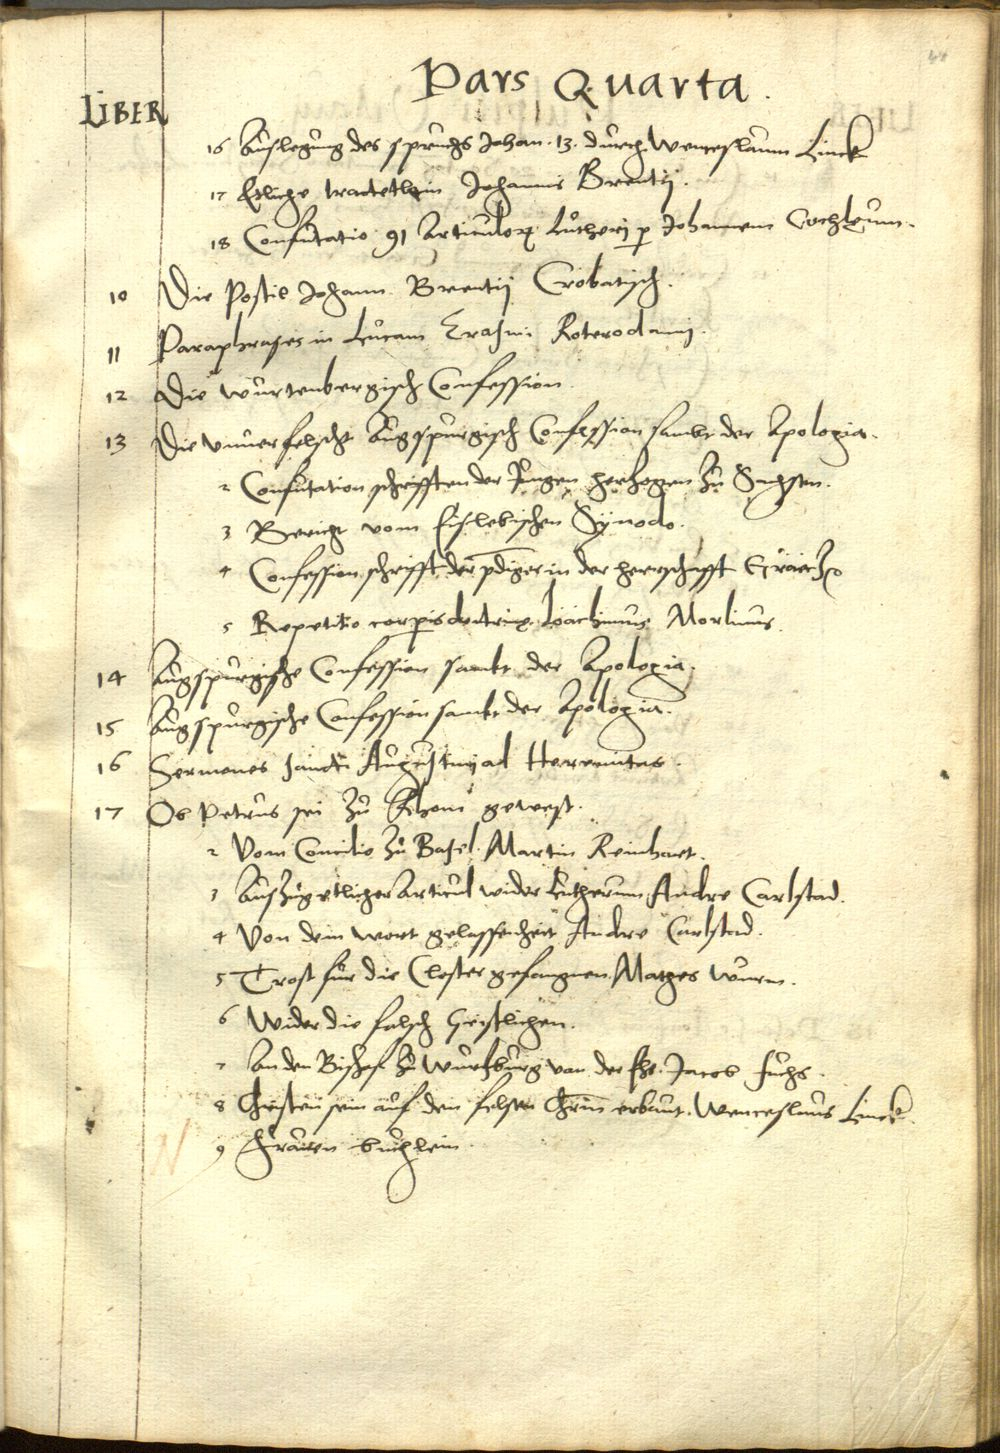 Pars Quarta.
LIBER
16 Auslegung des spruchs Johan. 13. durch Wenceslaum Linck
17 Etliche tractetlein Johannis Brentij.
18 Confutatio 91 Articulorum Lutherj per Johannem Cochleum.
10 Die Postil Johann Brentij Crobatisch.
11 Paraphrases in Lucam Erasmi Roterodamj.
12 Die würtenbergisch Confession
13 Die vnuerfelscht Augspurgisch Confession sambt der Apologia.
2 Confutation schrifften der Jungen herhogen zu Sachsen.
3 Bericht vom Eislebischen Synodo.
4 Confession schrifft der prediger in der herrschafft
5 Repetitio corporis doctrinæ Joachimus Morlinus.
14 Augspurgische Confession sambt der Apologia.
15 Augspurgische Confession sambt der Apologia.
16 Sermones sancti Augustinj ad Heremitas.
17 Ob Petrus sei zu Rhom gewest.
2 Vom Concilio zu Basel. Martin Reinhart.
3 Auszug etlicher Articul wider Lutherum Andre Carlstad.
4 Von dem wort gelassenheit Andre Carlstad.
5 Trost für die Closter gefangnen Matges Wurm.
6 Wider die falsch Geistlichen.
7 An den Bischof zu Wurtzburg von der Ehe. Jacob fuchs.
8 Christen sein auf den felsen Christum erbaut. Wenceslaus Linck.
9 Frauen buchlein.